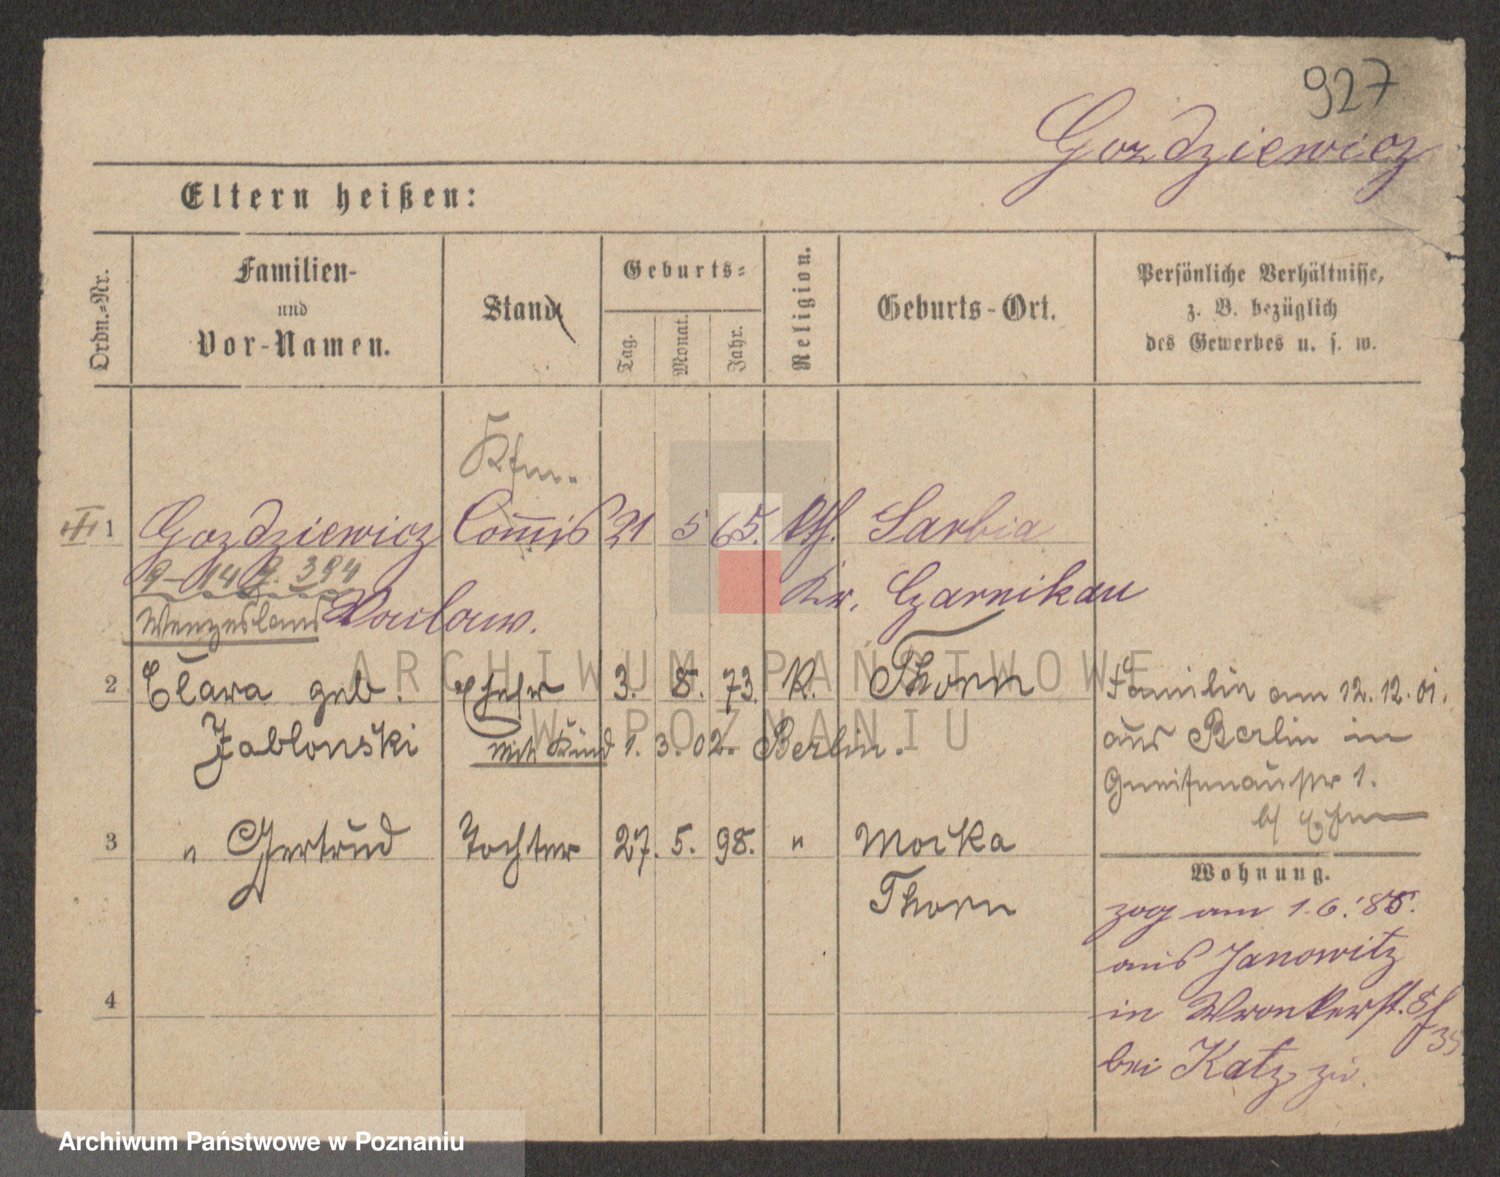 927
Gozdziewicz
Eltern heißen:
Ordn.-Nr.
Familien-
und
Vor-Namen.
Stand
Geburts-
Tag.
Monat.
Jahr.
Religion.
Geburts-Ort.
Persönliche Verhältnisse,
z. B. bezüglich
des Gewerbes u. s. w.
Kfm.
1 Gozdziewicz Commis 21 5 65. kth. Sarbia
9-14 394
Kr. Czarnikau
Wenzeslaus Waclaw.
2 Clara geb. Ehefr 3. 8. 73. K. Thorn
Jablonski
mit Kind 1. 3. 02. Berlin.
3 " Gertrud Tochter 27. 5. 98. " Mocka
Thorn
4
Familie am 12.12.01.
aus Berlin in
Gneisenaustr 1.
b/ Ehm
Wohnung.
zog am 1.6.'85.
aus Janowitz
in Wronkerst. 8/
35
bei Katz zu.
ARCHIWUM PAŃSTWOWE
W POZNANIU
Archiwum Państwowe w Poznaniu